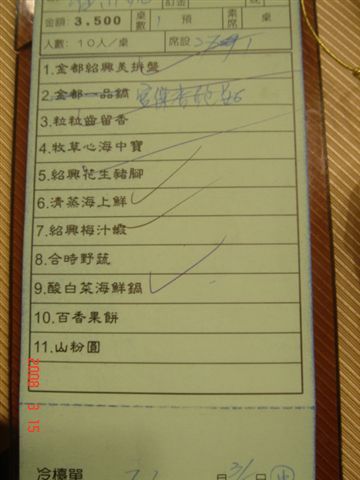 訂金
金額: 3,500 桌數 1 預 素席 桌
人數: 10人/桌 席設
1.金都紹興美拼盤
2.金都一品鍋
3.粒粒齒留香
4.牧草心海中寶
5.紹興花生豬腳
6.清蒸海上鮮
7.紹興梅汁蝦
8.合時野蔬
9.酸白菜海鮮鍋
10.百香果餅
11.山粉圓
2008 3 15
冷檯單 月 日